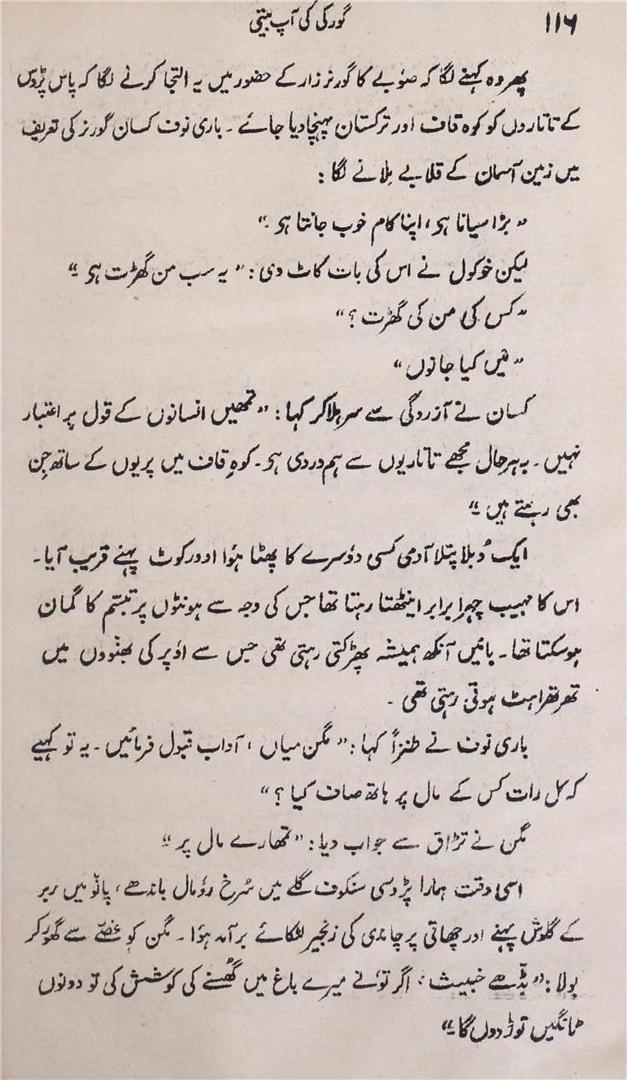 ۱۱۶ گورکی کی آپ بیتی
پھر وہ کہنے لگا کہ صوٗبے کا گورنر زار کے حضور میں یہ التجا کرنے لگا کہ پاس پڑوس
کے تاتاردں کو کوہ قاف اور ترکستان پہنچا دیا جائے ۔ باری نوف کسان گورنر کی تعریف
میں زمین آسمان کے قلابے مِلانے لگا :
” بڑا سیانا ہو ، اپنا کام خوب جانتا ہو ۔“
لیکن خوکول نے اس کی بات کاٹ دی : ” یہ سب من گھڑت ہو ۔“
” کس کی من کی گھڑت ؟ “
” مَیں کیا جانوں “
کسان نے آزردگی سے سر ہلا کر کہا : ” تمھیں انسانوں کے قول پر اعتبار
نہیں ۔ بہ ہر حال مجھے تاتاریوں سے ہم دردی ہو ۔ کوہِ قاف میں پریوں کے ساتھ جِن
بھی رہتے ہیں ۔“
ایک دُبلا پتلا آدمی کسی دوٗسرے کا پھٹا ہُوا اوورکوٹ پہنے قریب آیا ۔
اس کا مہیب چہرا برابر اینٹھتا رہتا تھا جس کی وجہ سے ہونٹوں پر تبسّم کا گمان
ہو سکتا تھا ۔ بائیں آنکھ ہمیشہ پھڑکتی رہتی تھی جس سے اوٗپر کی بھنووں میں
تھرتھراہٹ ہوتی رہتی تھی ۔
باری نوف نے طنزاً کہا : ” مگن میاں ، آداب قبول فرمائیں ۔ یہ تو کہیے
کہ کل رات کس کے مال پر ہاتھ صاف کیا ؟ “
مگن نے تڑاق سے جواب دیا : ” تمھارے مال پر ۔“
اسی وقت ہمارا پڑوسی سنکوف گلے میں سُرخ روٗمال باندھے ، پانْو میں ربر
کے گلوش پہنے اور چھاتی پر چاندی کی زنجیر لٹکائے برآمد ہوُا ۔ مگن کو غصّے سے گھوٗر کر
بولا : ” بڈّھے خبیث ، اگر توٗنے میرے باغ میں گھُسنے کی کوشش کی تو دونوں
ٹانگیں توڑ دوں گا ۔“